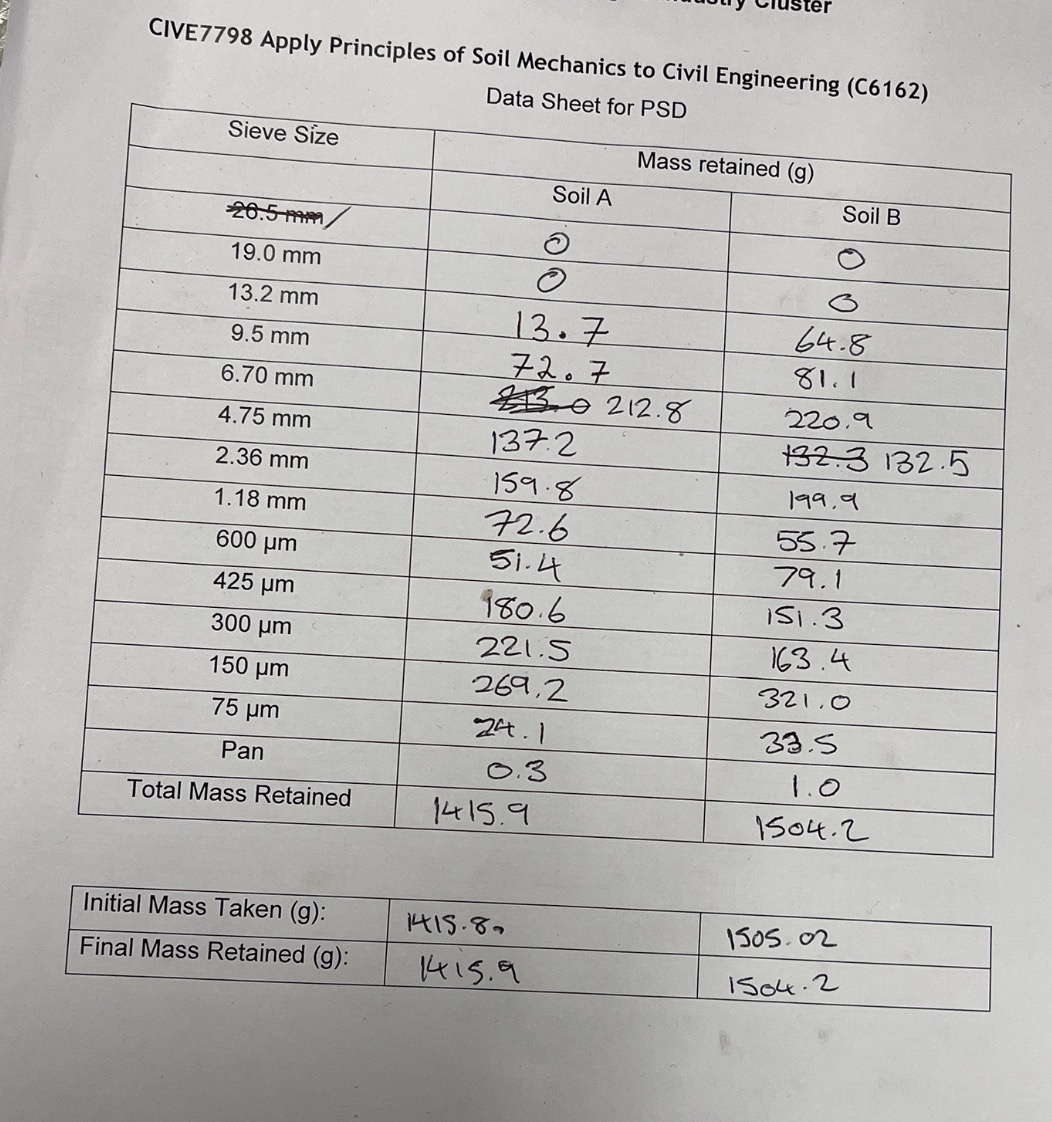 Cluster
CIVE7798 Apply Principles of Soil Mechanics to Civil Engineering (C6162)
Data Sheet for PSD
Sieve Size Mass retained (g)
Soil A Soil B
26.5 mm 0 0
19.0 mm 0 0
13.2 mm 13.7 64.8
9.5 mm 72.7 81.1
6.70 mm 213.0 212.8 220.9
4.75 mm 137.2 132.3 132.5
2.36 mm 159.8 199.9
1.18 mm 72.6 55.7
600 µm 51.4 79.1
425 µm 180.6 151.3
300 µm 221.5 163.4
150 µm 269.2 321.0
75 µm 24.1 33.5
Pan 0.3 1.0
Total Mass Retained 1415.9 1504.2
Initial Mass Taken (g): 1415.8 1505.02
Final Mass Retained (g): 1415.9 1504.2